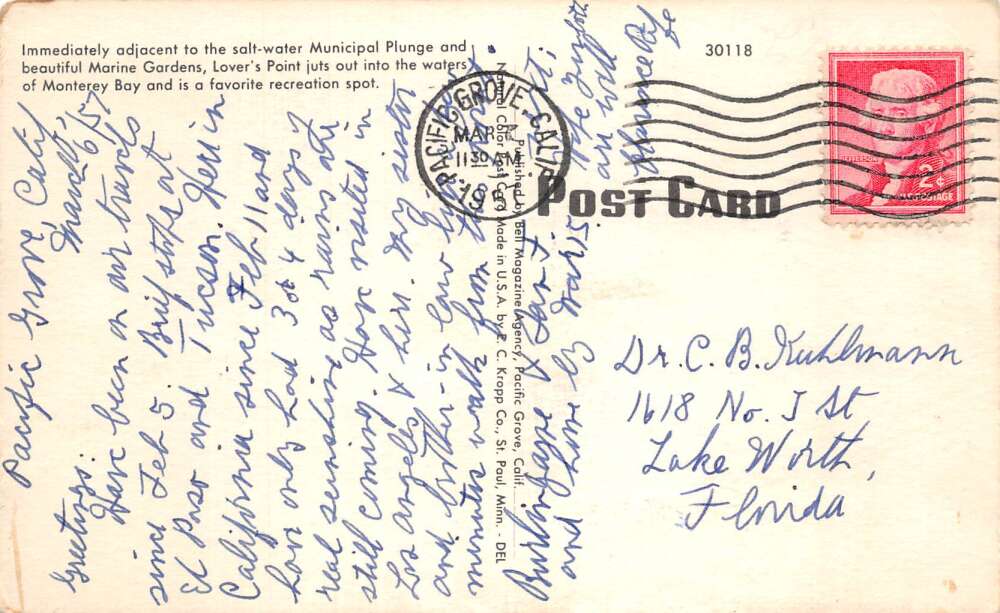 Immediately adjacent to the salt-water Municipal Plunge and
beautiful Marine Gardens, Lover's Point juts out into the waters
of Monterey Bay and is a favorite recreation spot.
30118
PACIFIC GROVE, CALIF.
MAR
11 30 AM
19
JEFFERSON
2¢
POSTAGE
POST CARD
Natural Color Post Card Made in U.S.A. by E. C. Kropp Co., St. Paul, Minn. - DEL
Published by Bell Magazine Agency, Pacific Grove, Calif.
Pacific Grove, Calif
March 6/57
Greetings:
Have been on air travels
since Feb 5 Brief stops at
El Paso and Tucson. Here in
California since Feb 11 and
have only had 3 or 4 days of
real sunshine as rains are
still coming. Have visited in
Los angeles & here. My sister
and brother-in law live
minutes walk from
Burlingame & San J
and home by Mar 15
Hope you both
are well
Dr. C. B. Kuhlmann
1618 No. J St
Lake Worth,
Florida